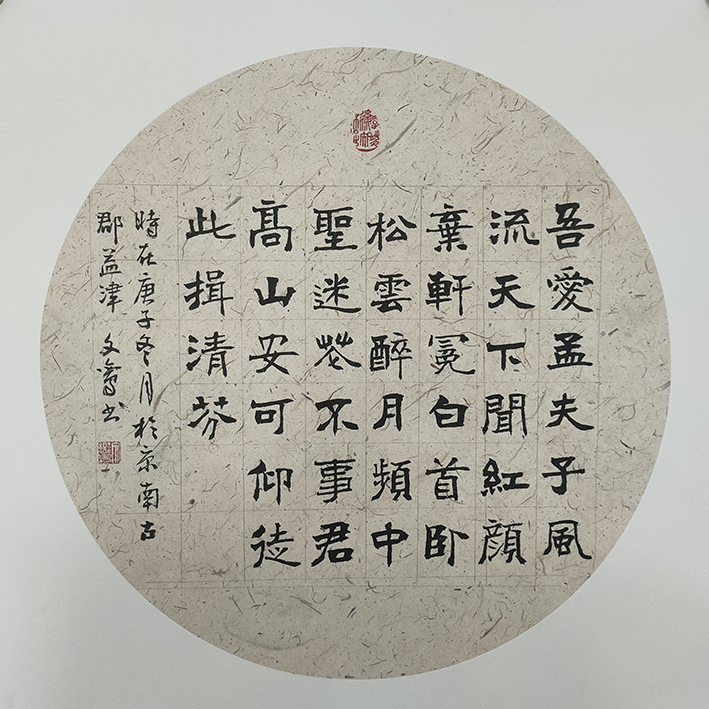 吾愛孟夫子風
流天下聞紅顔
棄軒冕白首卧
松雲醉月頻中
聖迷花不事君
髙山安可仰徒
此揖清芬
時在庚子冬月於京南古
郡益津 文書